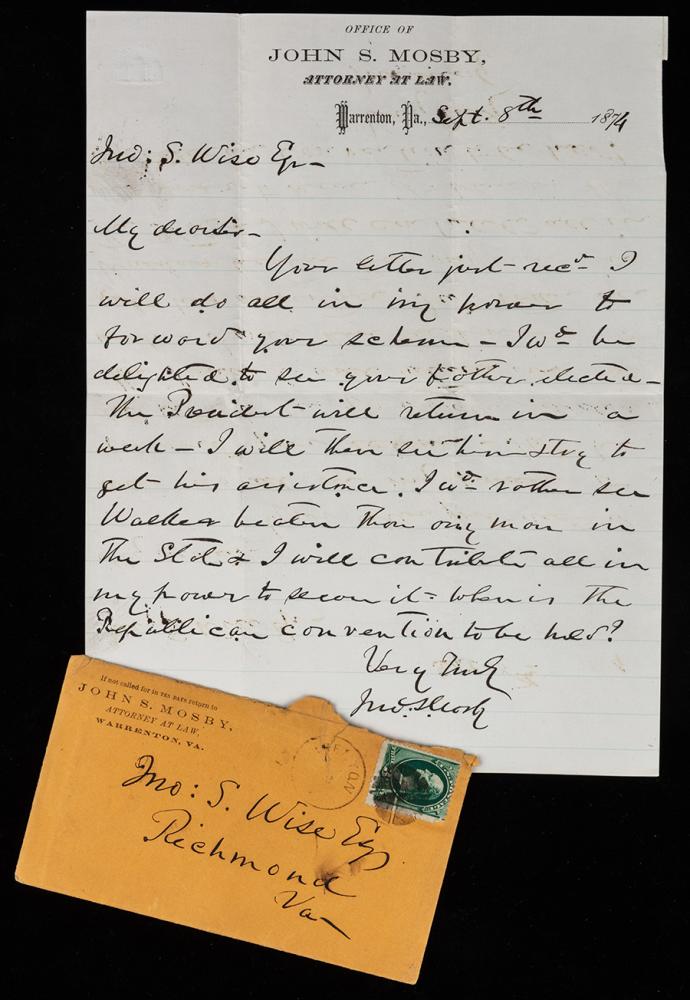 OFFICE OF
JOHN S. MOSBY,
ATTORNEY AT LAW.
Warrenton, Va., Sept. 8th 1874
Jno: S. Wise Esq—
My dear Sir—
Your letter just recd— I
will do all in my power to
forward your scheme — I wd be
delighted to see your father elected—
The President will return in a
week — I will then see him & try to
get his assistance. I wd rather see
Walker beaten than any man in
the State & I will contribute all in
my power to secure it — When is the
Republican convention to be held?
Very Truly
Jno. S. Mosby
If not called for in TEN DAYS return to
JOHN S. MOSBY,
ATTORNEY AT LAW,
WARRENTON, VA.
Jno: S. Wise Esq
Richmond
Va—